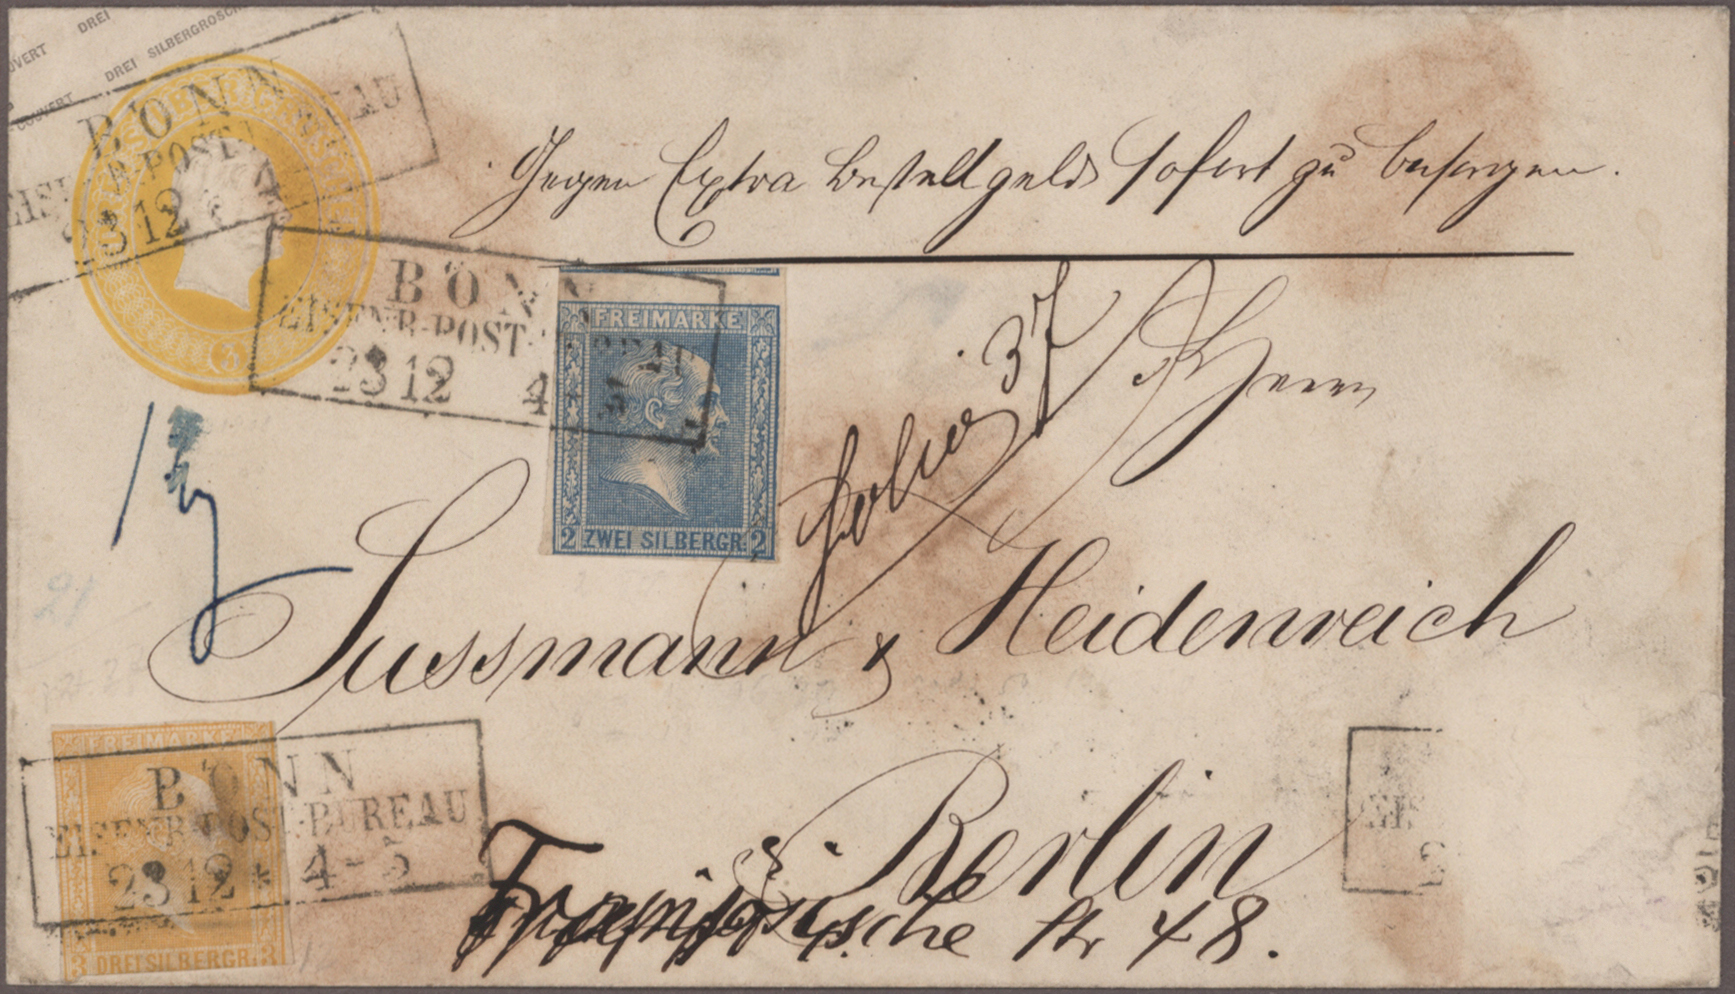 DREI
COUVERT DREI SILBERGROSCH
COUVERT
SILBERGROSCHEN
3
BONN
EISENB-POST-BUREAU
23 12
Gegen Extra Bestellgeld sofort zu besorgen.
BONN
EISENB-POST-BUREAU
23 12 4-5
FREIMARKE
2 ZWEI SILBERGR. 2
37
Herrn
Sussmann & Heidenreich
FREIMARKE
3 DREI SILBERGR. 3
BONN
EISENB-POST-BUREAU
23 12 * 4-5
Berlin
Französische Str 48.
EIS
2
21